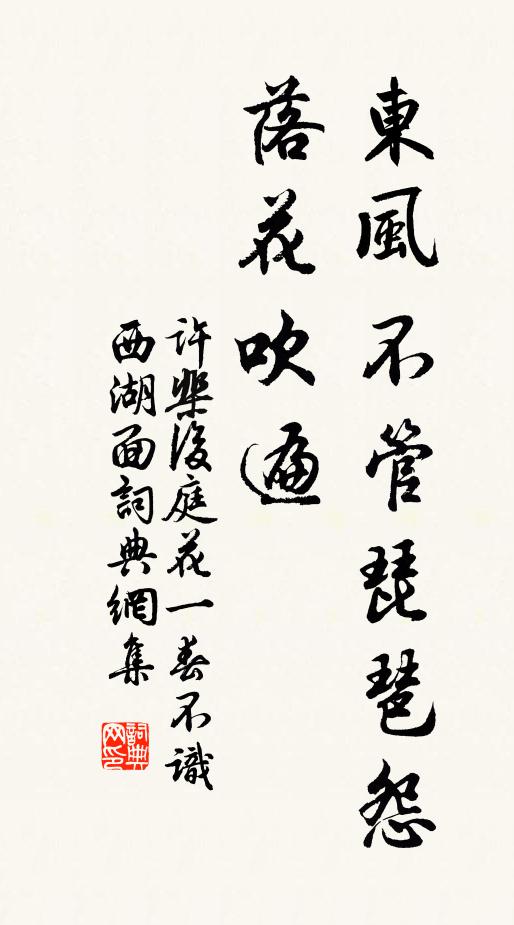 東風不管琵琶怨
落花吹遍
許棐後庭花一春不識
西湖面詞典網集
詞典网印